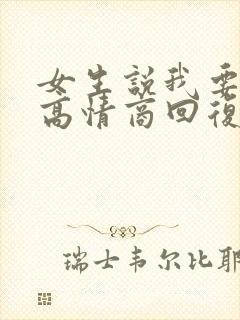 女生說我要
高情商回復
瑞士韦尔比耶